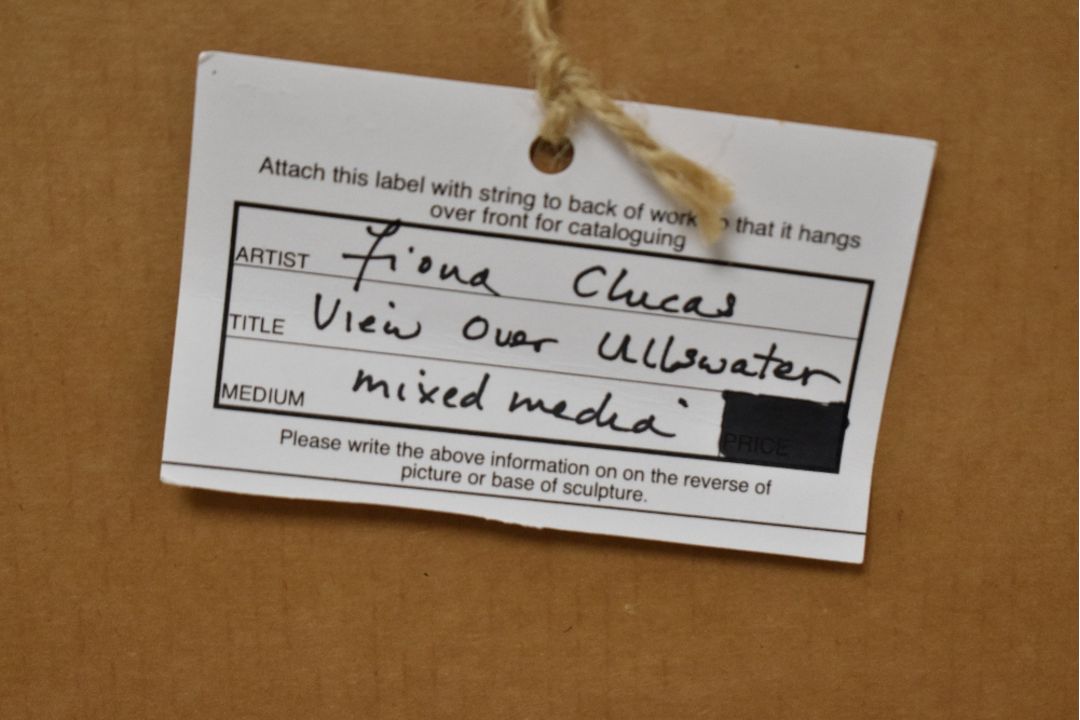 Attach this label with string to back of work that it hangs
over front for cataloguing
ARTIST Fiona Clucas
TITLE View over Ullswater
MEDIUM mixed media PRICE
Please write the above information on on the reverse of
picture or base of sculpture.